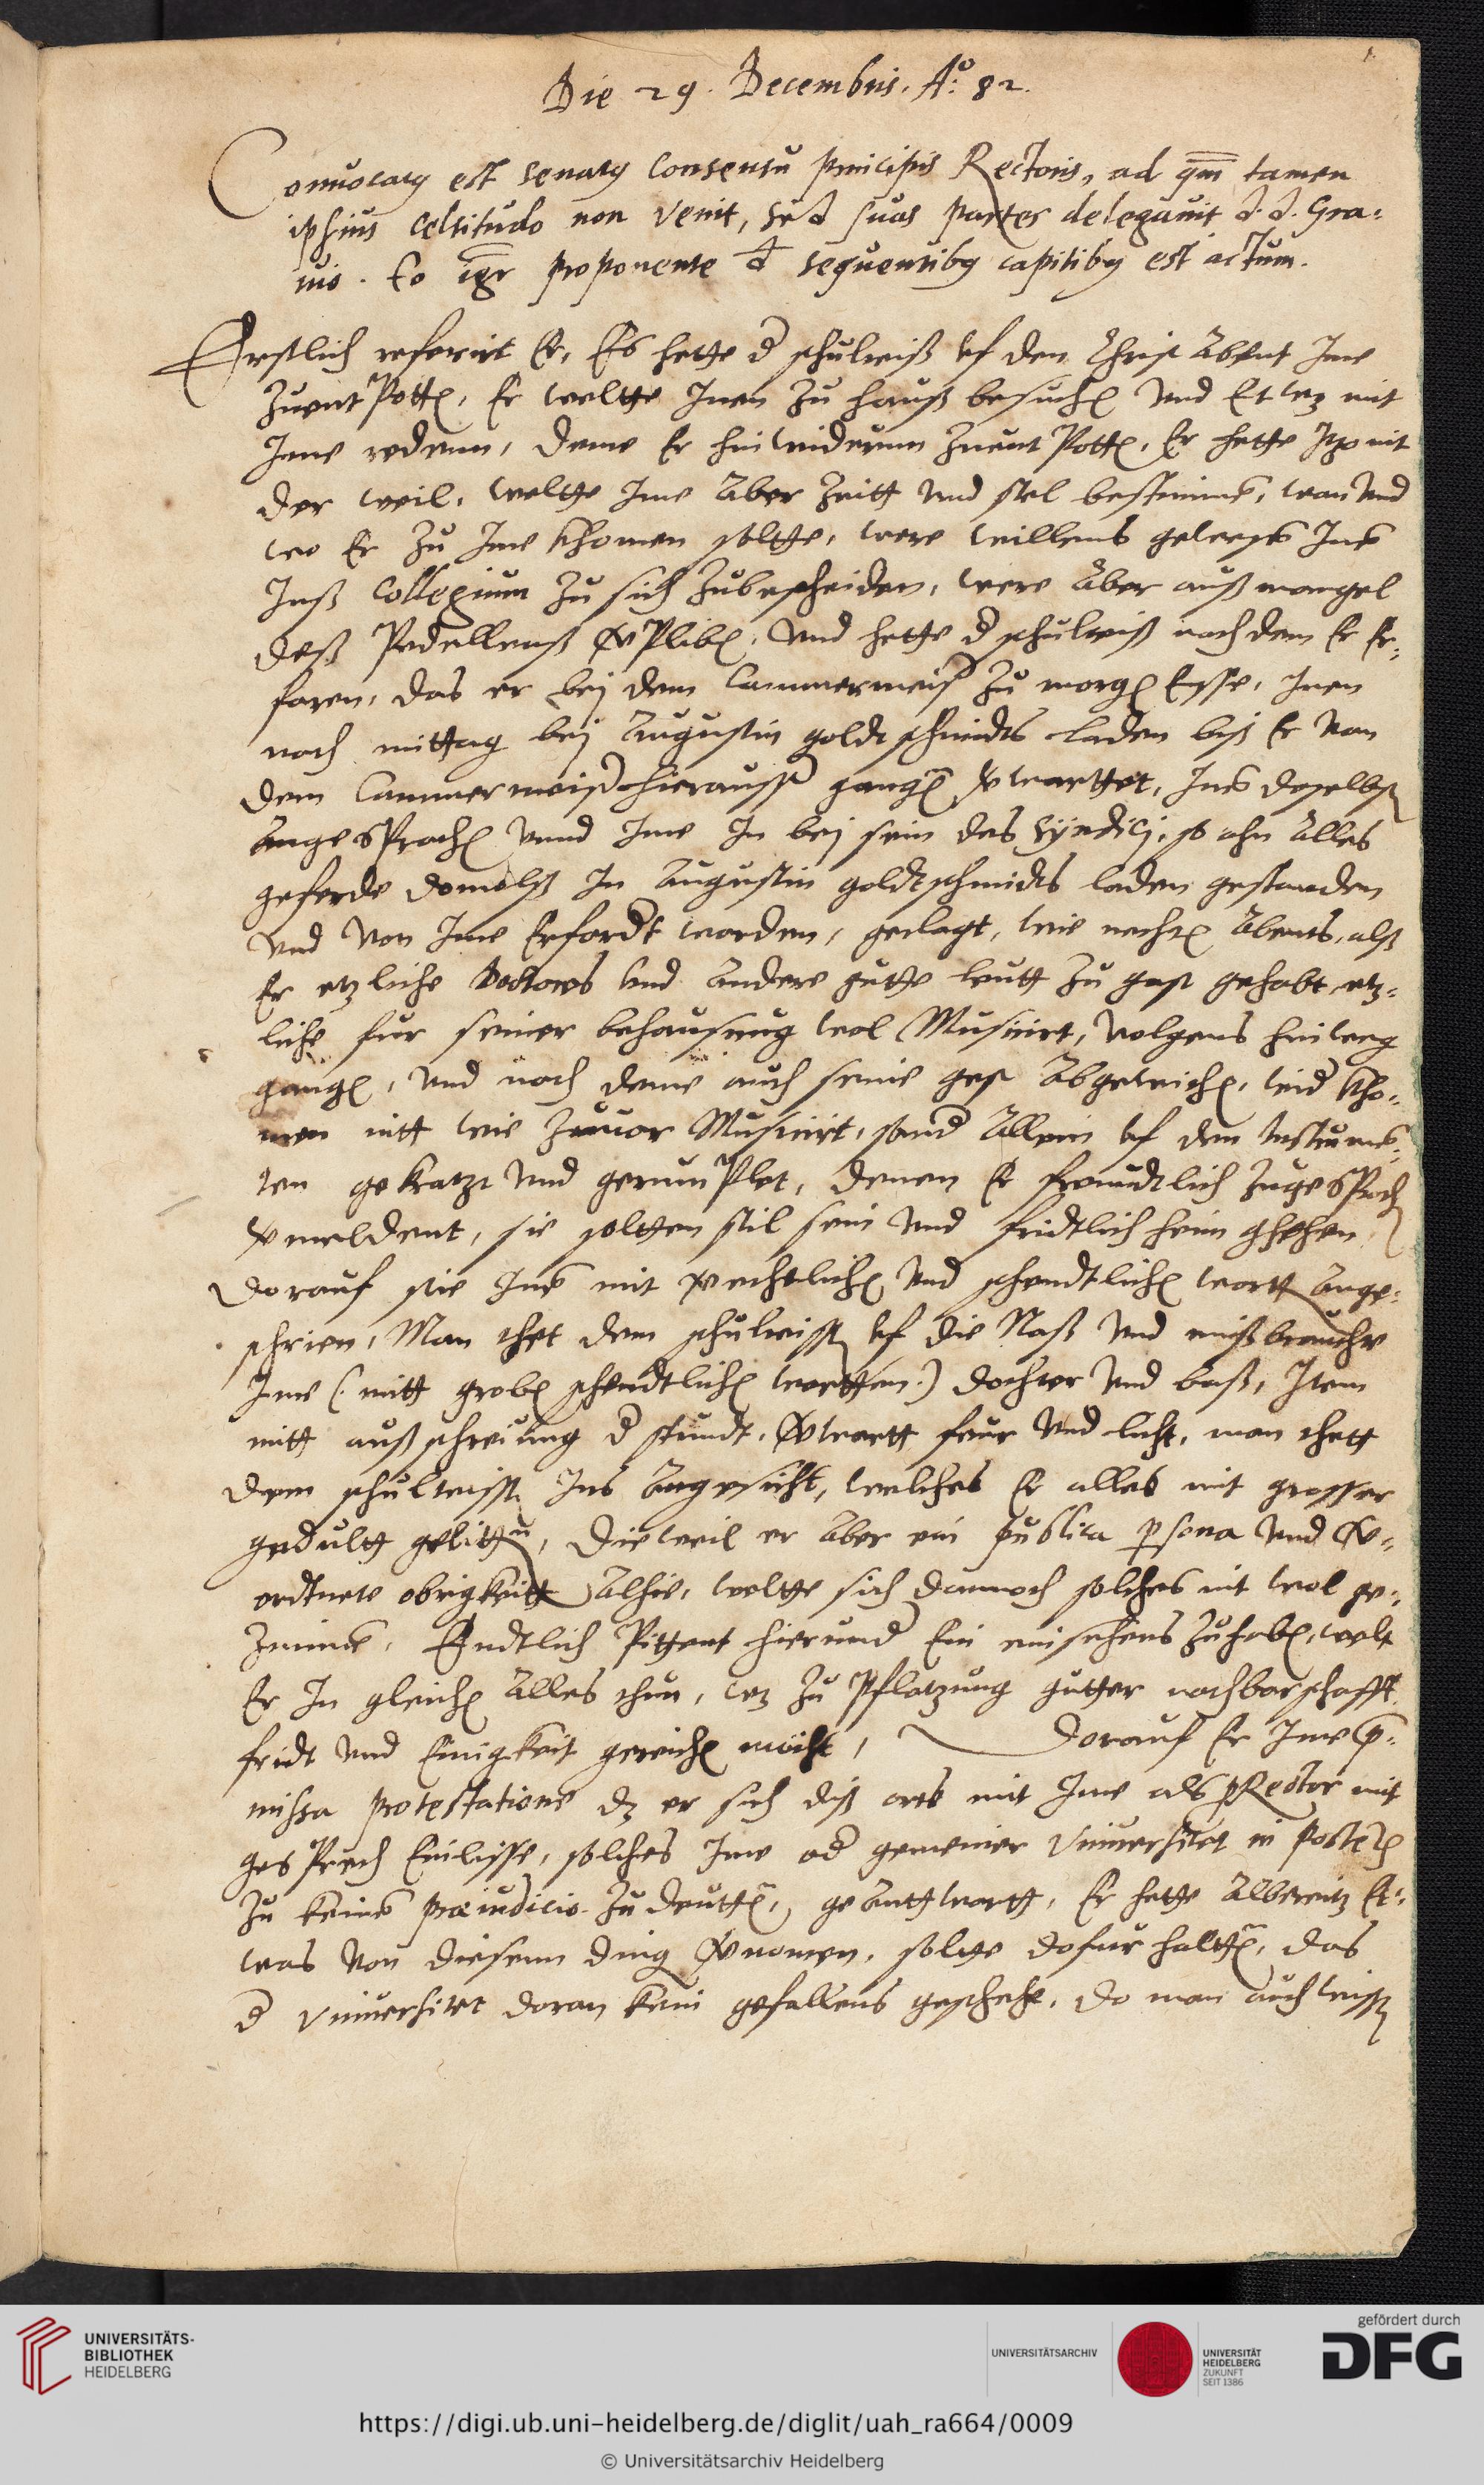 1.
Die 29. Decembris. Aº: 82.
Conuocatus est senatus consensu principis Rectoris, ad quem tamen
ipsius celsitudo non venit, sed suas partes delegauit d. d. Gra-
uio. Eo igr proponente d sequentibus capitibus est actum.
Erstlich referirt Er, Es hette d schulteiß vf den Christ Abent Ime
zuentPotten, Er woltte Inen zu hauß besuchen vnd Etwz mit
Ime redenn, deme Er hinwiderumm zuentPotten, Er hette Itzo nit
der weil, woltte Ime Aber Zeitt vnd stel bestimmen, wan vnd
wo Er zu Ime khomen soltte, were willens gewesen Inen
Inß Collegium zu sich zubescheiden, were Aber auß mangel
deß Pedellenß verPliben, vnd hette d schulteiß nach dem Er Er-
faren, das er bej dem Cammermeister zu morgen Esse, Inen
nach mittag bej Augustin goldtschmidts laden biß Er von
dem Cammermeister herausser gangen verwarttet, Inen doselbst
AngesProchen vnnd Ime In bej sein des Syndicj, so ohn Alles
geferde domalß In Augustin goldtschmidts laden gestanden
vnd von Ime Erfordert worden, geclagt, wie nechten Abents, alß
Er etzliche Doctores vnd Andere gutte leutt zu gast gehabt, etz-
liche fur seiner behausung wol Musicirt, volgens hinweg
gangen, vnd noch deme auch seine gest Abgewichen, wider kho-
men nitt wie zuuor Musicirt, sonder Allein vf den Instrumen-
ten gekratzt vnd gerumPlet, denen Er freundtlich zugesProchen
vermeldent, sie soltten stil sein vnd fridtlich heim ghehen
dorauf sie Inen mit verechtlichen vnd schendtlichen wortten Ange-
schrien, Man thet dem schulteissen vf die Naß vnd mißbrauchte
Ime (mitt groben schendtlichen wortten) dochter vnd baß, Item
mitt außschreiung d stundt, verwartt feur vnd licht, man thett
dem schulteissen Ins Angesicht, welches Er alles mit grosser
gedultt gelitten, Dieweil er Aber ein publica persona vnd ver-
ordtnete obrigkeitt Alhie, woltte sich dannoch solches nit wol ge-
zimmen, Endtlich Pittent hierunder Ein einsehens zuhaben, wolt
Er In gleichen Alles thun, wz zu Pflantzung gutter nachbarschafft
fridt vnd Einigkeit gereichen möcht, Dorauf Er Ime præ-
missa protestatione dz er sich diß orts mit Ime als proRector mit
gesPrech Einlisse, solches Ime oder gemeiner Vniuersitet in posterum
zu keinem præiudicio zu deutten, geAnttwortt, Er hette Albereitz Et-
was von diesenn ding vernomen, soltte dofur haltten, das
d Vniuersitet doran kein gefallens geschehe, do man auch wisse
UNIVERSITÄTS-
BIBLIOTHEK
HEIDELBERG
UNIVERSITÄTSARCHIV
UNIVERSITÄT
HEIDELBERG
ZUKUNFT
SEIT 1386
gefördert durch
DFG
https://digi.ub.uni-heidelberg.de/diglit/uah_ra664/0009
© Universitätsarchiv Heidelberg